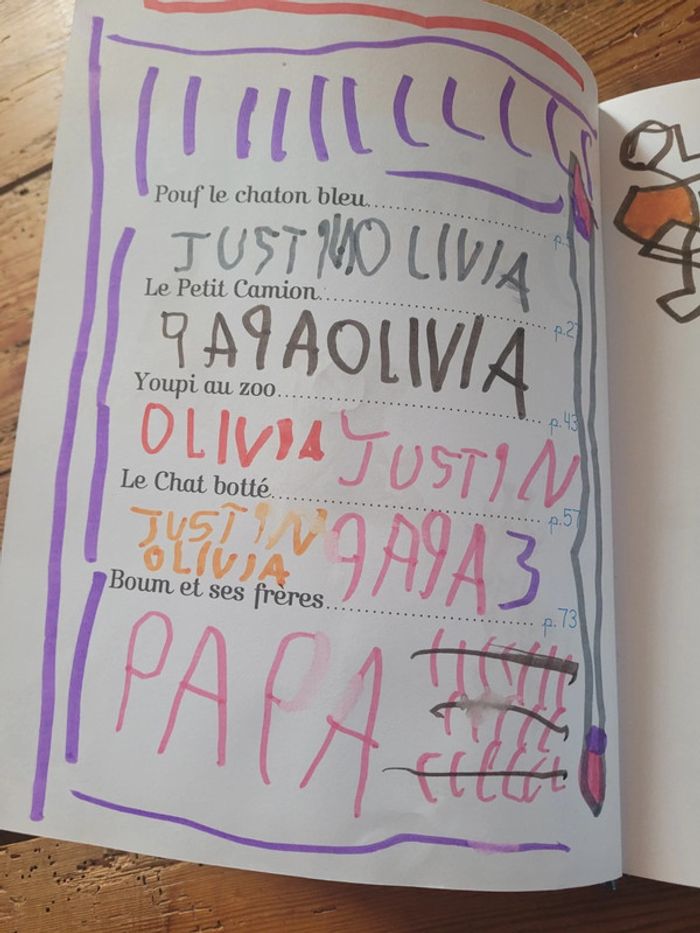 Pouf le chaton bleu.................... p.
JUSTIN OLIVIA
Le Petit Camion.................... p.27
PAPA OLIVIA
Youpi au zoo.................... p.43
OLIVIA JUSTIN
Le Chat botté.................... p.57
JUSTIN PAPA 3
OLIVIA
Boum et ses frères.................... p.73
PAPA